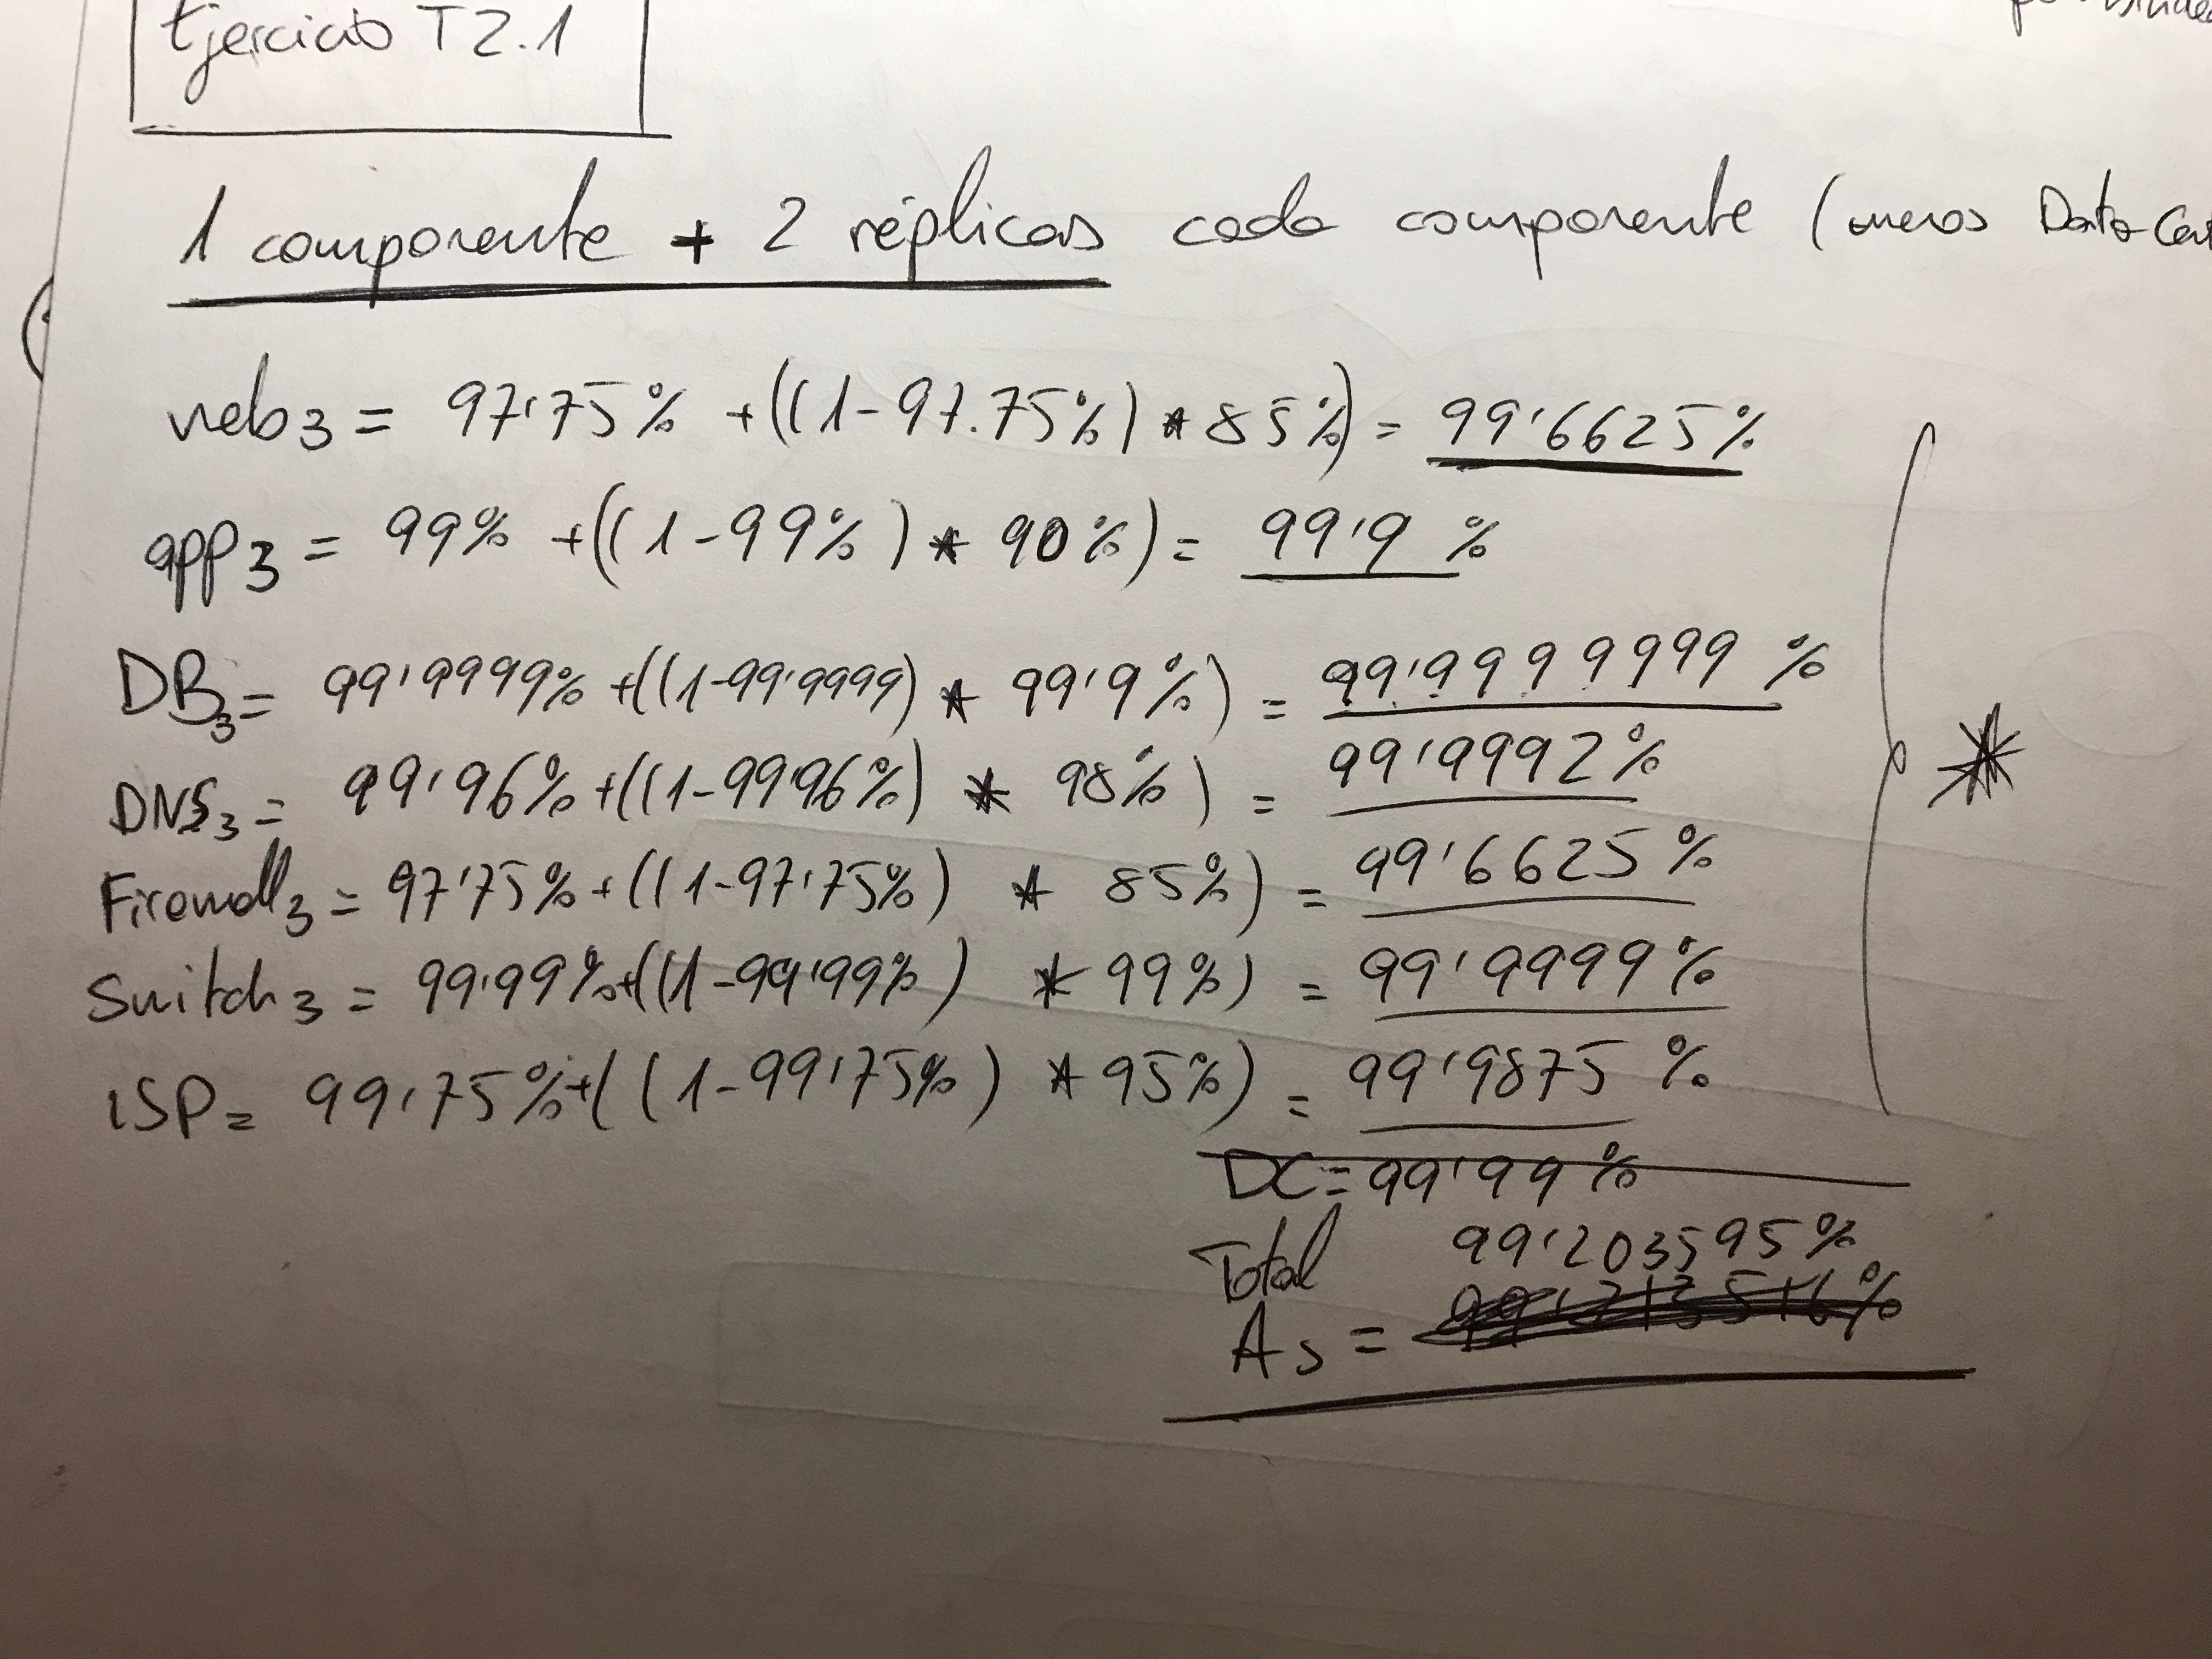 Ejercicio T2.1
1 componente + 2 réplicas cada componente (menos Data Cen
web3 = 97'75% + ((1-97.75%) * 85%) = 99'6625%
app3 = 99% + ((1-99%) * 90%) = 99'9 %
DB3 = 99'9999% + ((1-99'9999) * 99'9%) = 99'9999999 %
DNS3 = 99'96% + ((1-99'96%) * 98%) = 99'9992%
Firewall3 = 97'75% + ((1-97'75%) * 85%) = 99'6625%
Switch3 = 99'99% + ((1-99'99%) * 99%) = 99'9999%
ISP = 99'75% + ((1-99'75%) * 95%) = 99'9875 %
*
DC = 99'99%
Total 99'203595%
As =